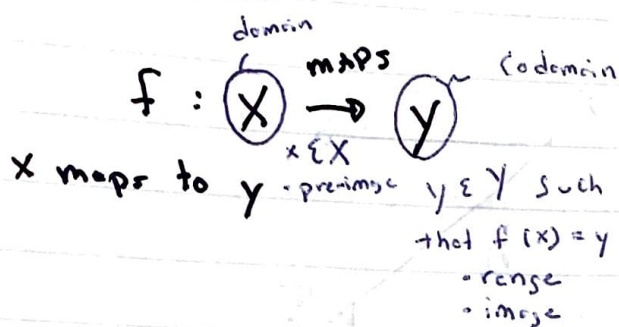 domain
MAPS
Codomain
f : X → Y
x ε X
x maps to y
• pre-image
y ε Y such
that f(x) = y
• range
• image